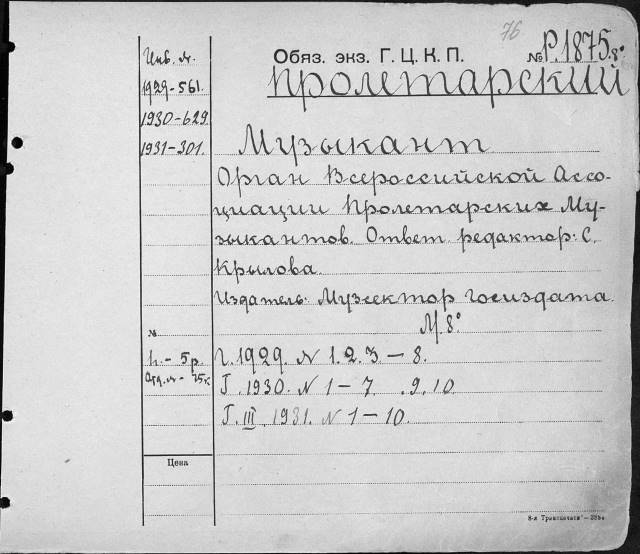 76
Обяз. экз. Г. Ц. К. П. № Р.1875. 8°
Инв. №
1929-561.
1930-629
1931-301.
Пролетарский
Музыкант
Орган Всероссийской Ассо-
циации Пролетарских Му-
зыкантов. Ответ. редактор: С.
Крылова.
Издатель: Музсектор Госиздата.
М. 8°
№
п. - 5 р.
Отд. № - 75 к.
Г. 1929. N 1. 2. 3 — 8.
Г. 1930. N 1 — 7. .9. 10.
Г. III. 1931. N 1 — 10.
Цена